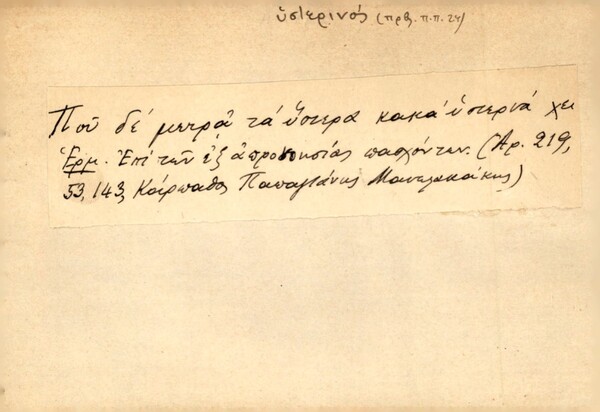 ὑστερινός (πρβ. π.π. 24)
Ποῦ δέ μετρᾷ τά ὕστερα κακά ὑστερνά χει
Ἑρμ. Ἐπί τῶν ἐξ ἀπρονοησίας πασχόντων. (Ἀρ. 219,
53, 143, Κάρπαθος Παπαγιάννης Μανωλακάκης)